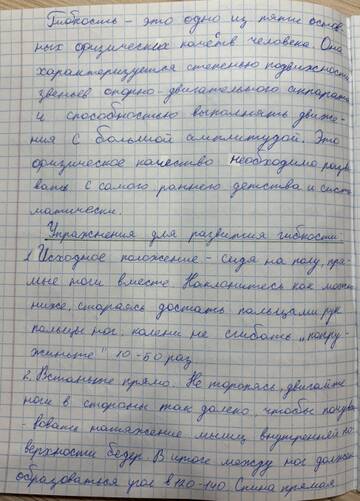 Гибкость - это одно из пяти основ
ных физических качеств человека. Она
характеризуется степенью подвижности
звеньев опорно-двигательного аппарата
и способностью выполнять движе-
ния с большой амплитудой. Это
физическое качество необходимо разви
вать с самого раннего детства и систе
матически.
Упражнения для развития гибкости.
1. Исходное положение - сидя на полу, пря-
мые ноги вместе. Наклонитесь как можно
ниже, стараясь достать пальцами рук
пальцы ног, колени не сгибать, "попру-
жиньте" 10-50 раз
2. Встаньте прямо. Не торопясь, двигайте
ноги в стороны так далеко, чтобы почувст
вовать натяжение мышц внутренней по
верхности бедер. В итоге между ног должен
образоваться угол в 120-140. Спина прямая